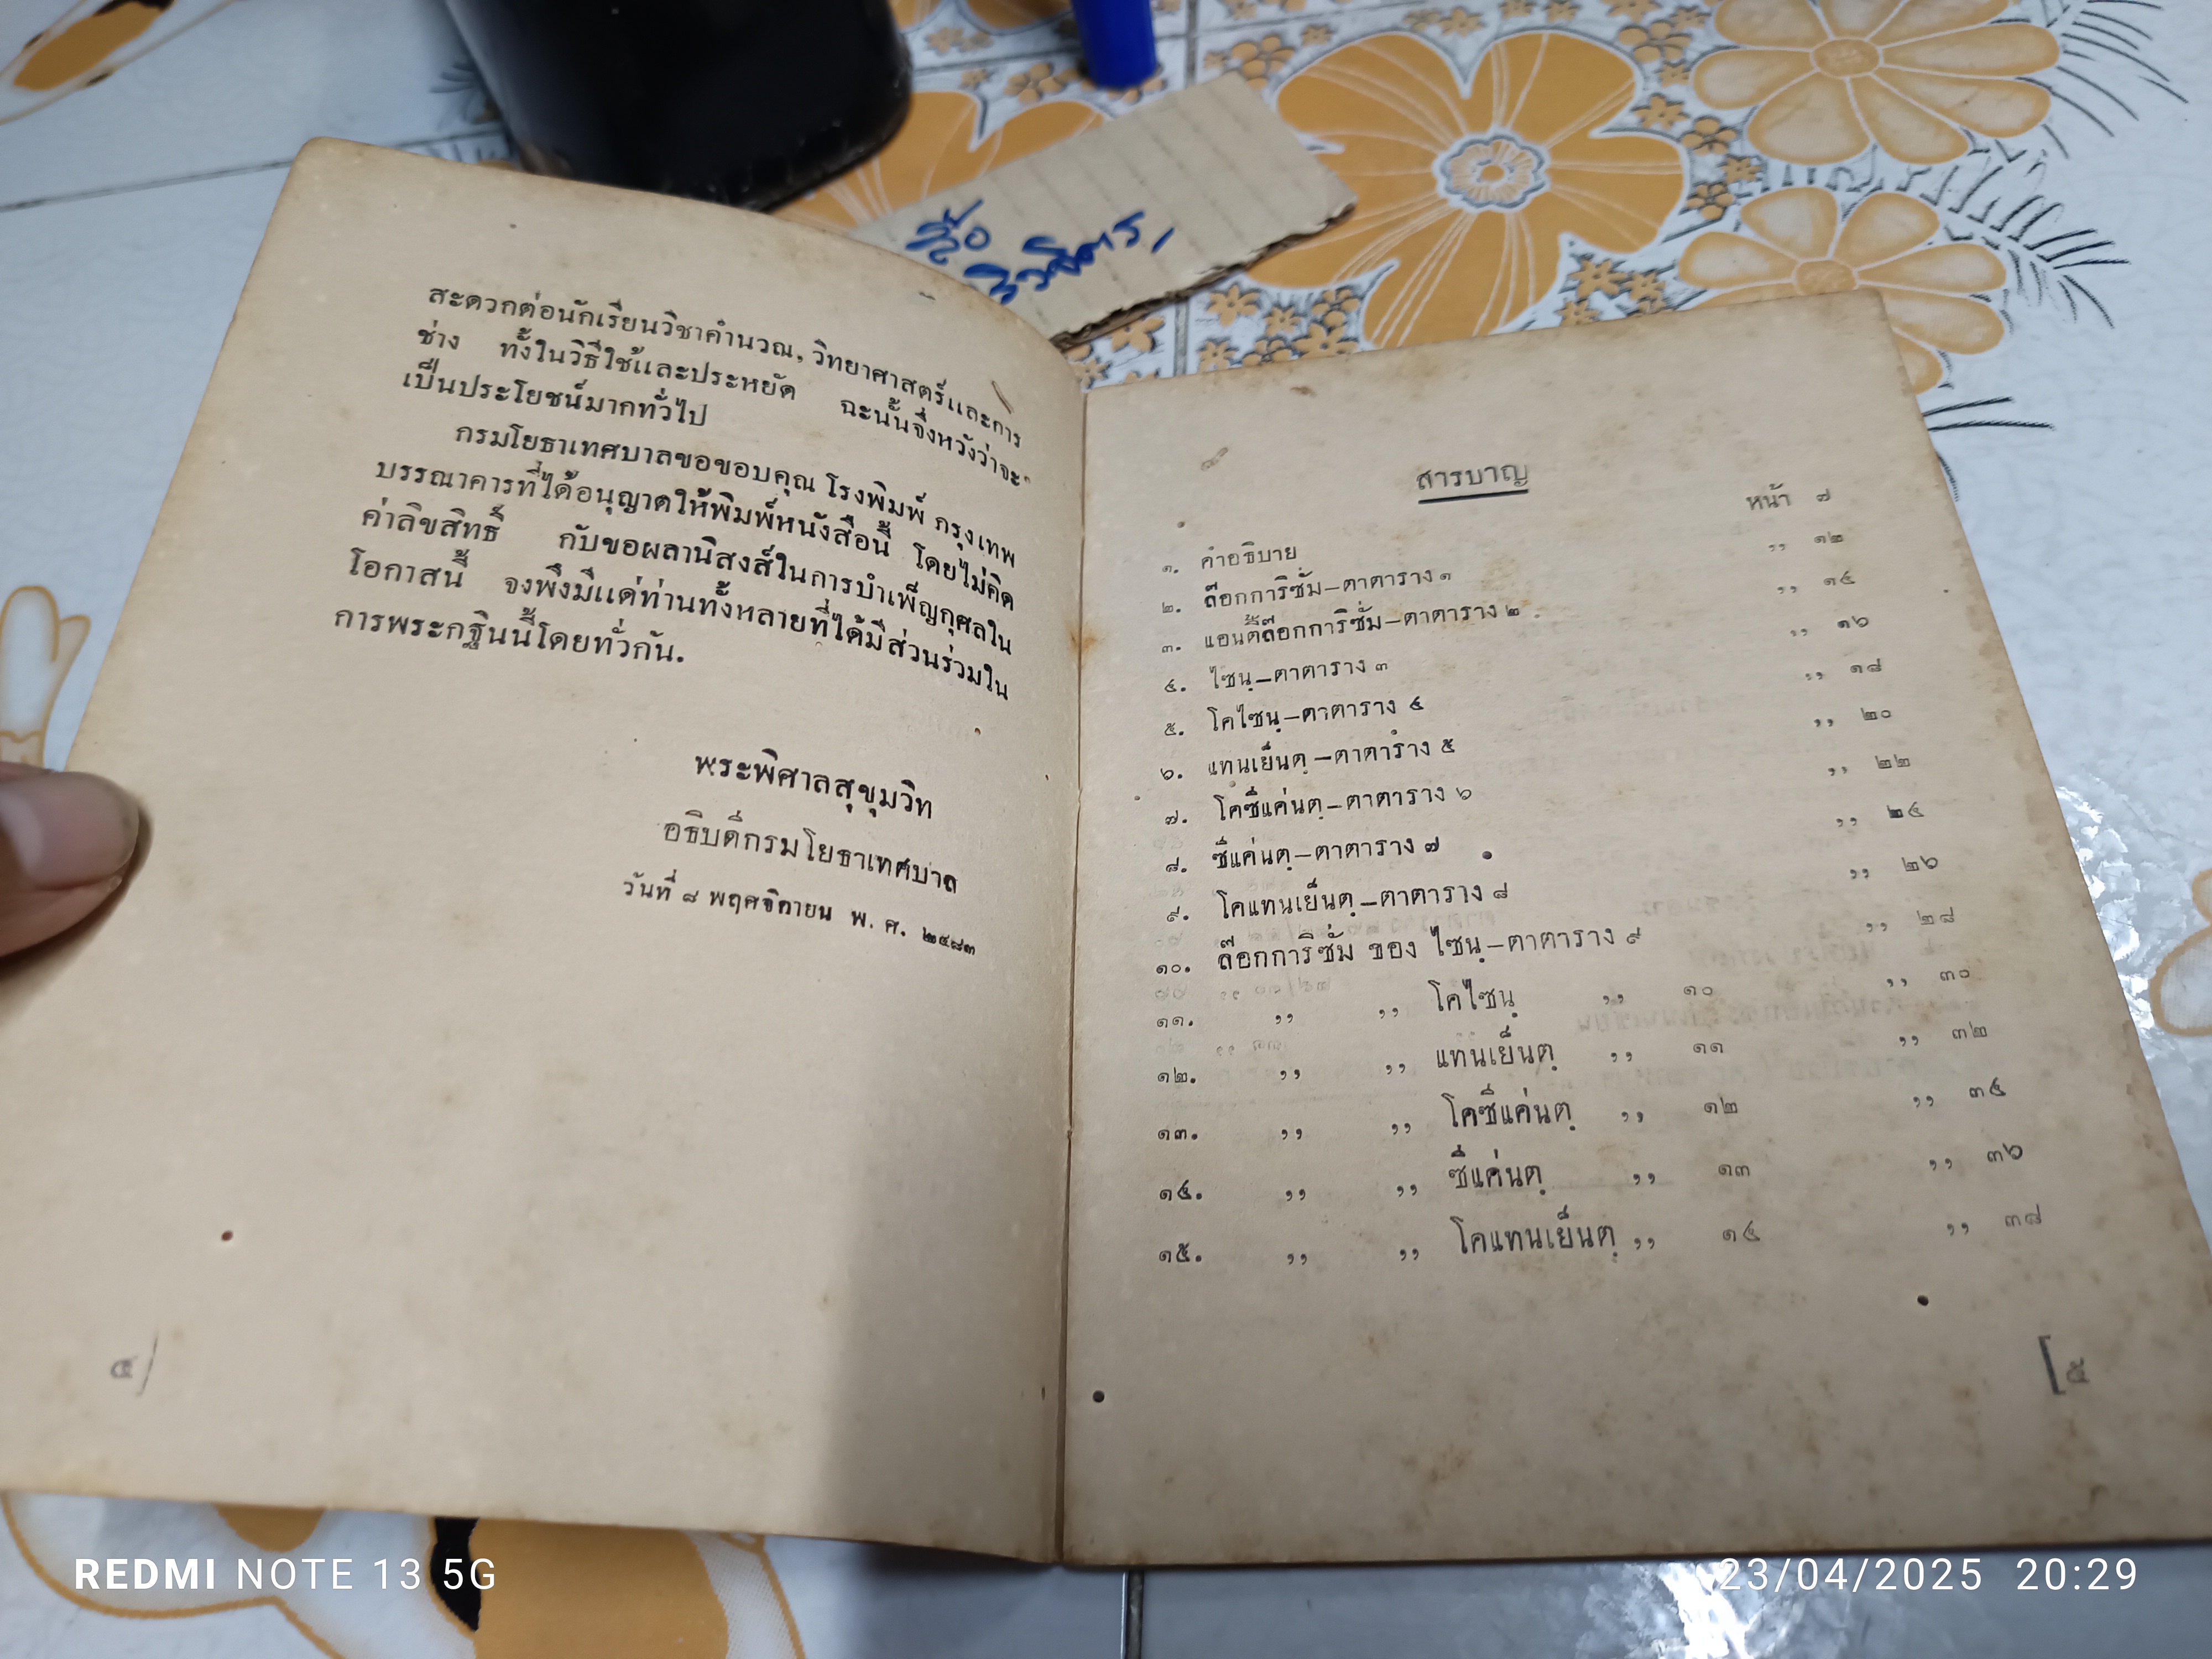 สื้อ
สะดวกต่อนักเรียนวิชาคำนวณ, วิทยาศาสตร์และการ
ช่าง ทั้งในวิธีใช้และประหยัด ฉะนั้นจึ่งหวังว่าจะ
เป็นประโยชน์มากทั่วไป
กรมโยธาเทศบาลขอขอบคุณ โรงพิมพ์ กรุงเทพ
บรรณาคารที่ได้อนุญาตให้พิมพ์หนังสือนี้ โดยไม่คิด
ค่าลิขสิทธิ์ กับขอผลานิสงส์ในการบำเพ็ญกุศลใน
โอกาสนี้ จงพึงมีแด่ท่านทั้งหลายที่ได้มีส่วนร่วมใน
การพระกฐินนี้โดยทั่วกัน.
พระพิศาลสุขุมวิท
อธิบดีกรมโยธาเทศบาล
วันที่ ๘ พฤศจิกายน พ. ศ. ๒๔๘๓
๔/
สารบาญ
๑. คำอธิบาย หน้า ๗
๒. ล๊อกการิซั่ม—ตาตาราง ๑ ,, ๑๒
๓. แอนตี้ล๊อกการิซั่ม—ตาตาราง ๒ ,, ๑๔
๔. ไซนฺ—ตาตาราง ๓ ,, ๑๖
๕. โคไซนฺ—ตาตาราง ๔ ,, ๑๘
๖. แทนเย็นตฺ—ตาตาราง ๕ ,, ๒๐
๗. โคซีแค่นตฺ—ตาตาราง ๖ ,, ๒๒
๘. ซีแค่นตฺ—ตาตาราง ๗ ,, ๒๔
๙. โคแทนเย็นตฺ—ตาตาราง ๘ ,, ๒๖
๑๐. ล๊อกการิซั่ม ของ ไซนฺ—ตาตาราง ๙ ,, ๒๘
๑๑. ,, ,, โคไซนฺ ,, ๑๐ ,, ๓๐
๑๒. ,, ,, แทนเย็นตฺ ,, ๑๑ ,, ๓๒
๑๓. ,, ,, โคซีแค่นตฺ ,, ๑๒ ,, ๓๔
๑๔. ,, ,, ซีแค่นตฺ ,, ๑๓ ,, ๓๖
๑๕. ,, ,, โคแทนเย็นตฺ ,, ๑๔ ,, ๓๘
[๕
REDMI NOTE 13 5G
23/04/2025 20:29